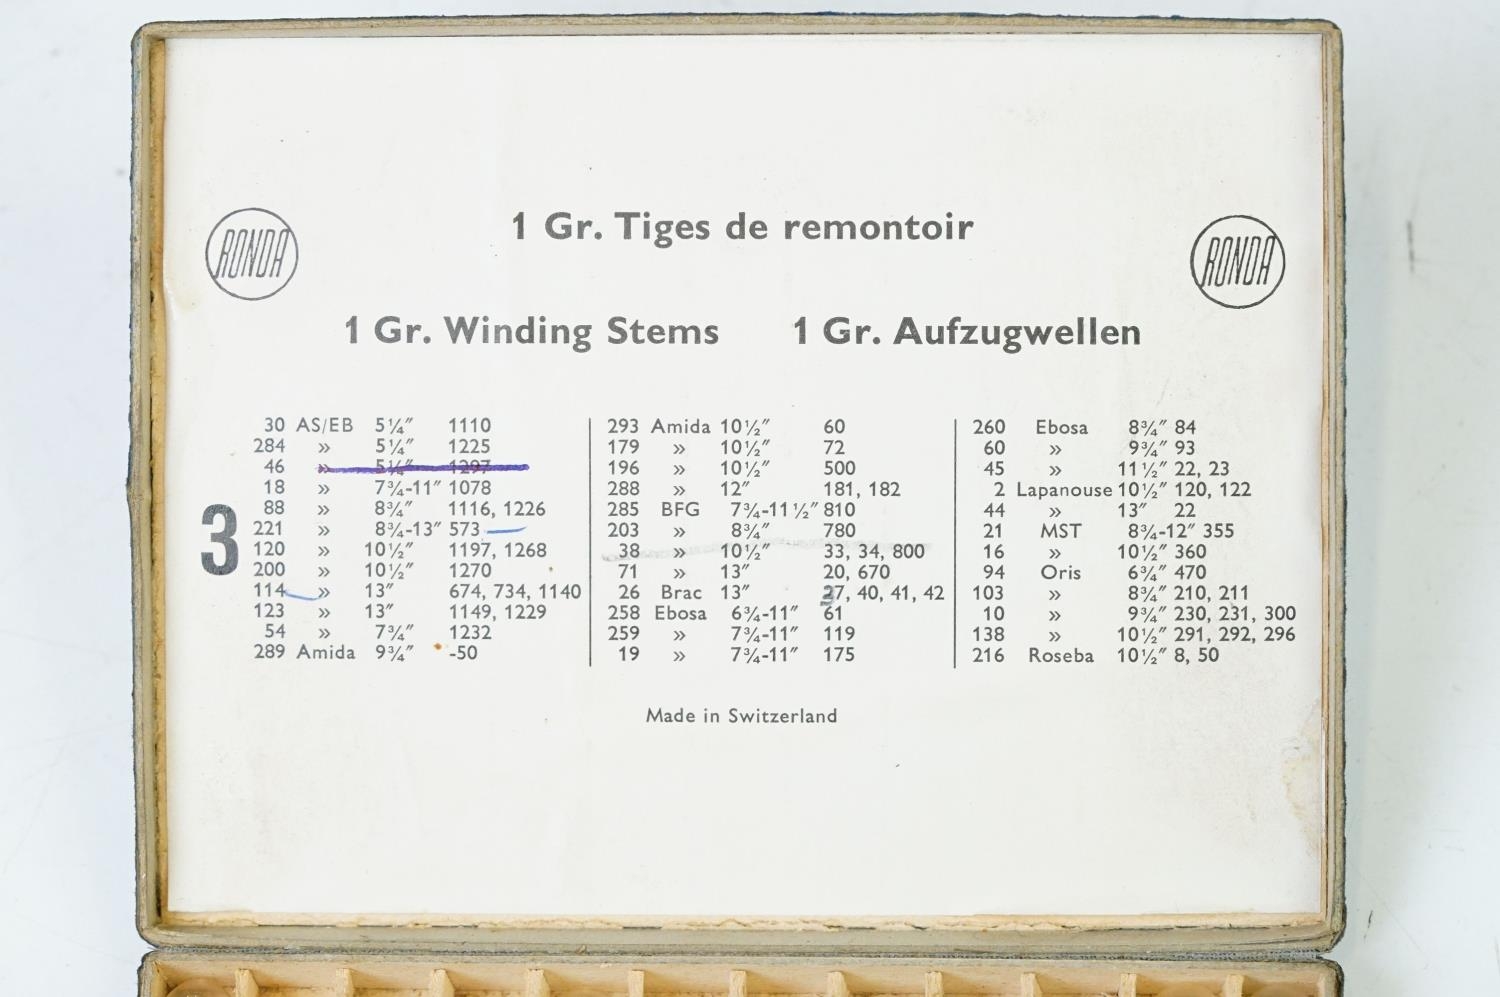 1 Gr. Tiges de remontoir
RONDA
RONDA
1 Gr. Winding Stems 1 Gr. Aufzugwellen
3
30 AS/EB 5¼″ 1110
284 » 5¼″ 1225
46 » 5¼″ 1297
18 » 7¾-11″ 1078
88 » 8¾″ 1116, 1226
221 » 8¾-13″ 573
120 » 10½″ 1197, 1268
200 » 10½″ 1270
114 » 13″ 674, 734, 1140
123 » 13″ 1149, 1229
54 » 7¾″ 1232
289 Amida 9¾″ -50
293 Amida 10½″ 60
179 » 10½″ 72
196 » 10½″ 500
288 » 12″ 181, 182
285 BFG 7¾-11½″ 810
203 » 8¾″ 780
38 » 10½″ 33, 34, 800
71 » 13″ 20, 670
26 Brac 13″ 37, 40, 41, 42
258 Ebosa 6¾-11″ 61
259 » 7¾-11″ 119
19 » 7¾-11″ 175
260 Ebosa 8¾″ 84
60 » 9¾″ 93
45 » 11½″ 22, 23
2 Lapanouse 10½″ 120, 122
44 » 13″ 22
21 MST 8¾-12″ 355
16 » 10½″ 360
94 Oris 6¾″ 470
103 » 8¾″ 210, 211
10 » 9¾″ 230, 231, 300
138 » 10½″ 291, 292, 296
216 Roseba 10½″ 8, 50
Made in Switzerland